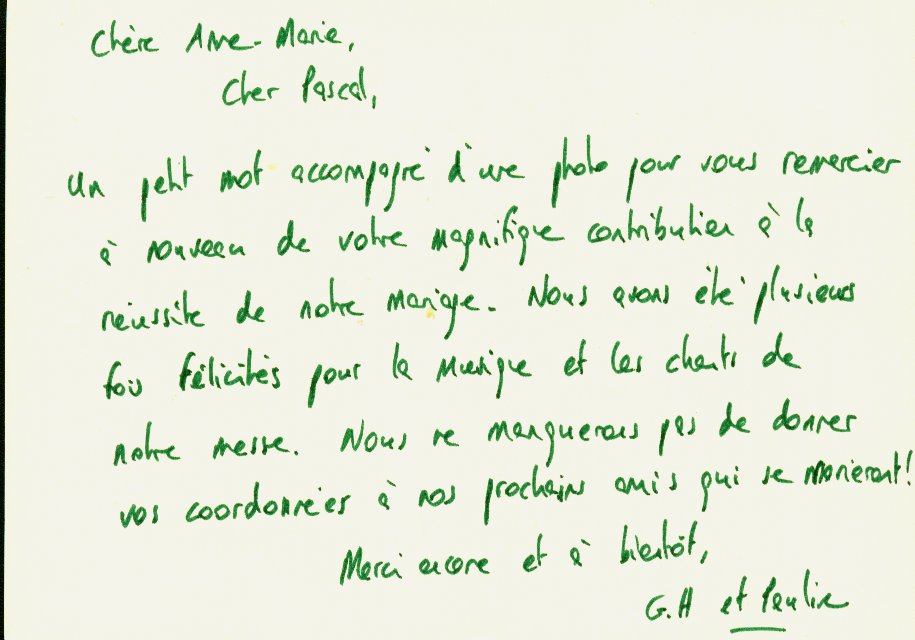 Chère Anne-Marie,
Cher Pascal,
Un petit mot accompagné d'une photo pour vous remercier
à nouveau de votre magnifique contribution à la
réussite de notre mariage. Nous avons été plusieurs
fois félicités pour la musique et les chants de
notre messe. Nous ne manquerons pas de donner
vos coordonnées à nos prochains amis qui se marieront!
Merci encore et à bientôt,
G.H et Pauline